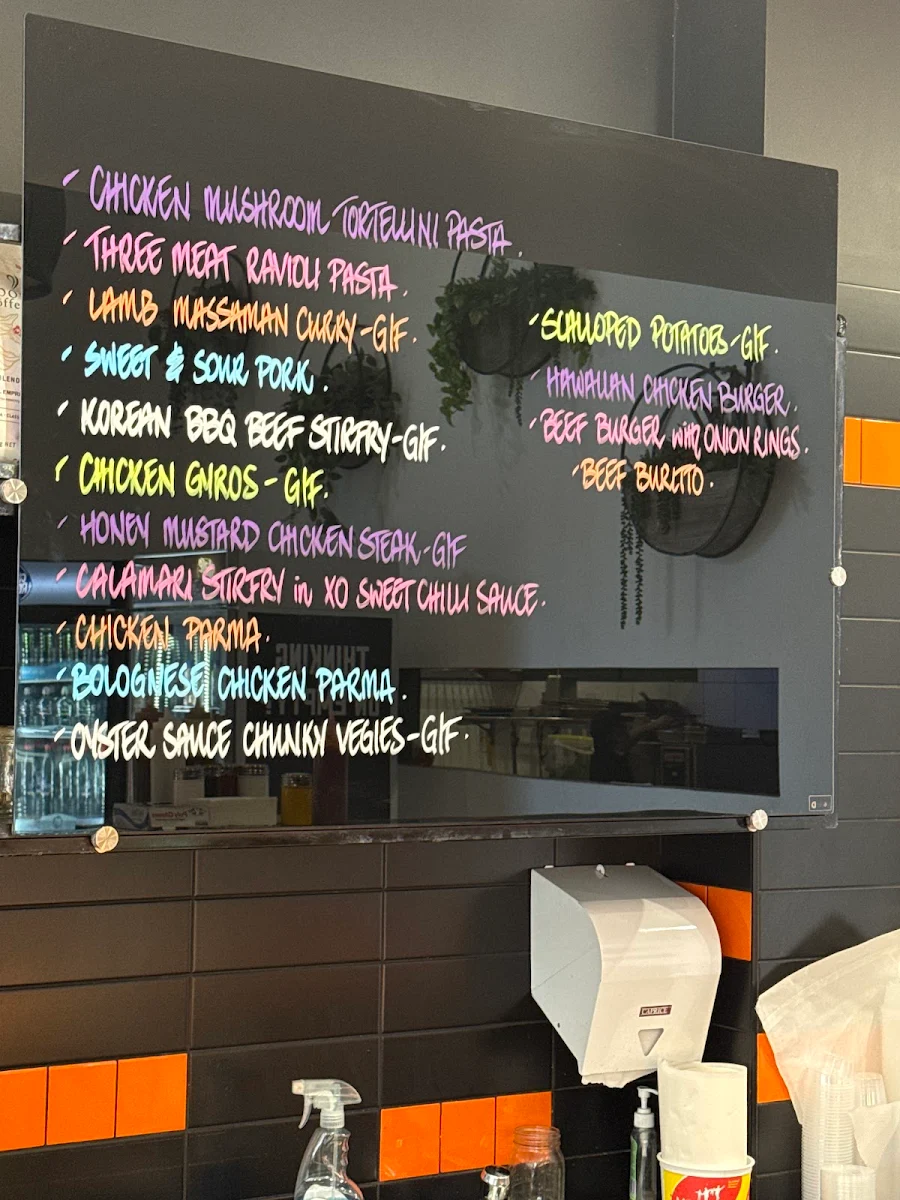 - CHICKEN MUSHROOM TORTELLINI PASTA.
- THREE MEAT RAVIOLI PASTA.
- LAMB MASSAMAN CURRY-G/F.
- SWEET & SOUR PORK.
- KOREAN BBQ BEEF STIRFRY-G/F.
- CHICKEN GYROS - G/F.
- HONEY MUSTARD CHICKEN STEAK-G/F
- CALAMARI STIRFRY in XO SWEET CHILLI SAUCE.
- CHICKEN PARMA.
- BOLOGNESE CHICKEN PARMA.
- OYSTER SAUCE CHUNKY VEGIES-G/F.
- SCALLOPED POTATOES-G/F.
- HAWAIIAN CHICKEN BURGER.
- BEEF BURGER with ONION RINGS.
- BEEF BURRITO.
CAPRICE